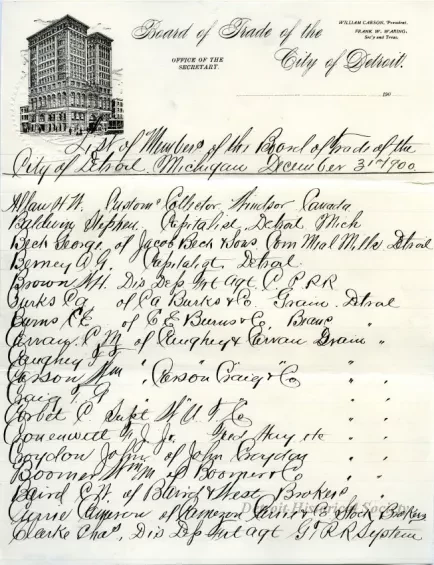 Board of Trade of the
City of Detroit.
WILLIAM CARSON, President.
FRANK W. WARING,
Sec'y and Treas.
OFFICE OF THE
SECRETARY.
190
List of Members of the Board of Trade of the
City of Detroit Michigan December 31st 1900
Allan H.W. Customs Collector Windsor Canada
Baldwin Stephen. Capitalist, Detroit Mich
Beck George, of Jacob Beck & Sons, Corn Meal Mills Detroit
Berney A.G. Capitalist, Detroit
Brown Div Frt Agt C.P.RR
Burks CA of CA Burks & Co. Grain. Detroit
Burns C.E. of C E Burns & Co, Beans "
Carran, P.M. of Caughey & Carran Grain "
Caughey " " "
Carson Wm " Carson Craig & Co " "
Craig " "
Corbet C. Supt W.U.T. Co " "
J. Jr. Hay etc " "
Croydon John, of John Croydon " "
Boomer Wm M of Boomer & Co " "
Baird C.W. of Baird & West, Brokers " "
Currie Cameron of Cameron Currie & Co Stock Brokers
Clarke Chas, Div Frt Agt G.T.R.R System
Detroit Historical Society